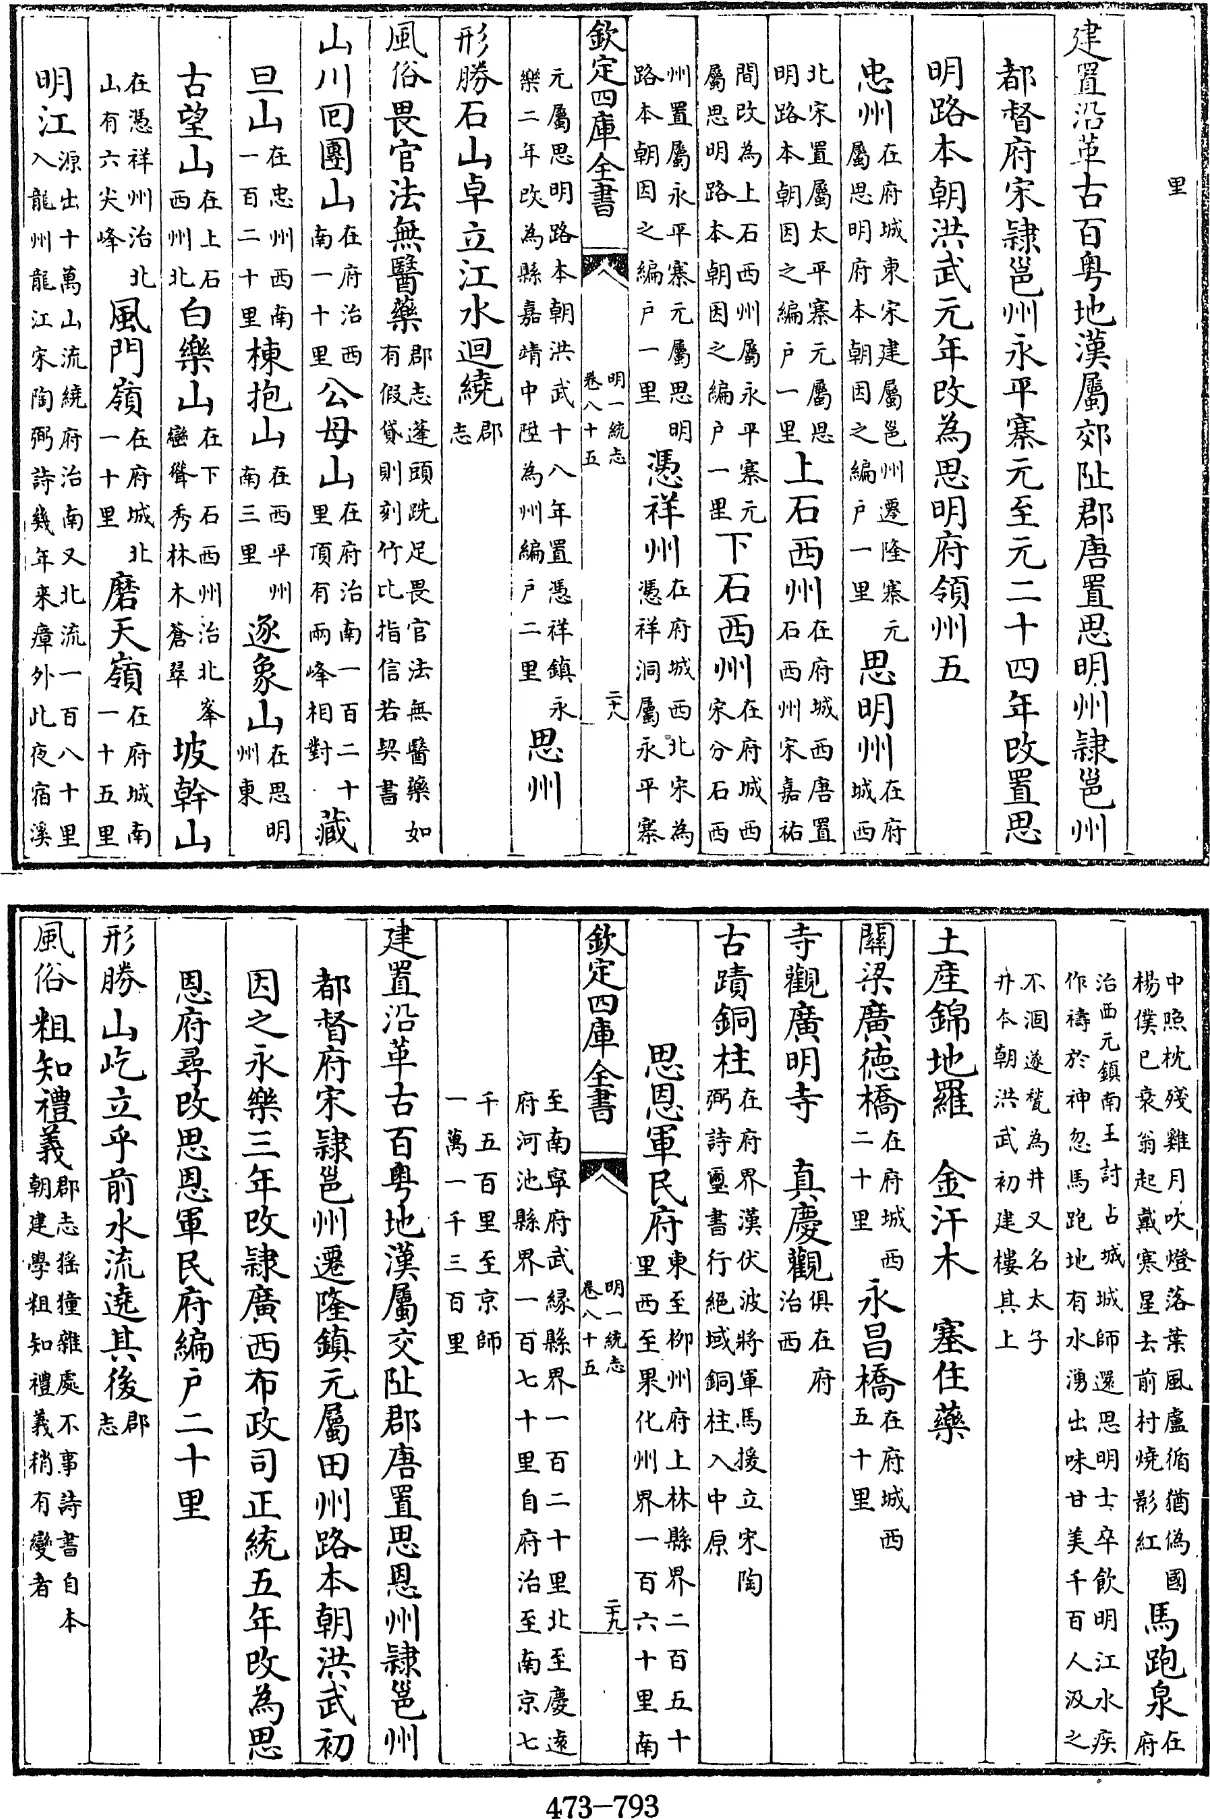 里
建置沿革古百粤地漢屬郊阯郡唐置思明州隷邕州
都督府宋隷邕州永平寨元至元二十四年改置思
明路本朝洪武元年改為思明府領州五
忠州在府城東宋建屬邕州遷隆寨元屬思明府本朝因之編户一里思明州在府城西
北宋置屬太平寨元屬思明路本朝因之編户一里上石西州在府城西唐置石西州宋嘉祐
間改為上石西州屬永平寨元屬思明路本朝因之編户一里下石西州在府城西宋分石西
州置屬永平寨元屬思明路本朝因之編户一里憑祥州在府城西北宋為憑祥洞屬永平寨
欽定四庫全書 明一統志卷八十五 二十八
元屬思明路本朝洪武十八年置憑祥鎮永樂二年改為縣嘉靖中陞為州編户二里思州
形勝石山卓立江水迴繞郡志
風俗畏官法無醫藥郡志蓬頭跣足畏官法無醫藥如有假貸則刻竹比指信若契書
山川回團山在府治西南一十里公母山在府治南一百二十里頂有兩峰相對藏
旦山在忠州西南一百二十里棟抱山在西平州南三里逐象山在思明州東
古望山在上石西州北白樂山在下石西州治北峯巒聳秀林木蒼翠坡幹山
在憑祥州治北山有六尖峰風門嶺在府城北一十里磨天嶺在府城南一十五里
明江源出十萬山流繞府治南又北流一百八十里入龍州龍江宋陶弼詩幾年来瘴外此夜宿溪
中照枕殘雞月吹燈落葉風盧循猶偽國楊僕已衰翁起戴寒星去前村燒影紅馬跑泉在府
治西元鎮南王討占城城師還思明士卒飲明江水疾作禱於神忽馬跑地有水湧出味甘美千百人汲之
不涸遂甃為井又名太子井本朝洪武初建樓其上
土産錦地羅 金汗木 塞住藥
關梁廣德橋在府城西二十里永昌橋在府城西五十里
寺觀廣明寺 真慶觀俱在府治西
古蹟銅柱在府界漢伏波將軍馬援立宋陶弼詩璽書行絕域銅柱入中原
思恩軍民府東至柳州府上林縣界二百五十里西至果化州界一百六十里南
欽定四庫全書 明一統志卷八十五 二十九
至南寧府武緣縣界一百二十里北至慶遠府河池縣界一百七十里自府治至南京七
千五百里至京師一萬一千三百里
建置沿革古百粤地漢屬交阯郡唐置思恩州隷邕州
都督府宋隷邕州遷隆鎮元屬田州路本朝洪武初
因之永樂三年改隷廣西布政司正統五年改為思
恩府尋改思恩軍民府編户二十里
形勝山屹立乎前水流遶其後郡志
風俗粗知禮義郡志猺獞雜處不事詩書自本朝建學粗知禮義稍有變者
473-793